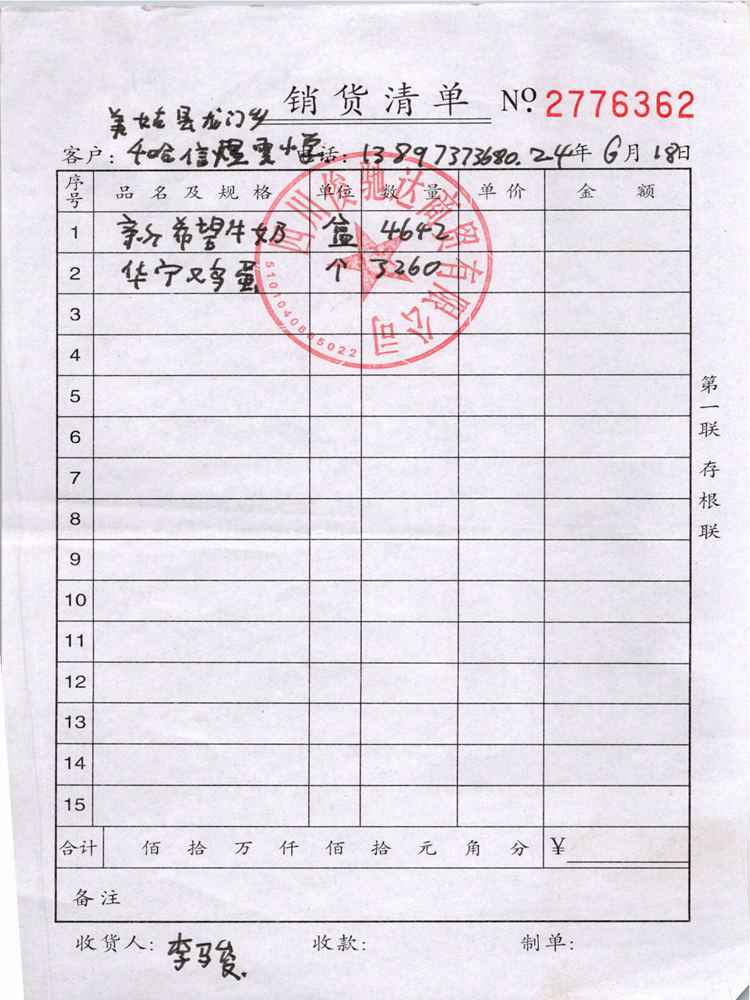 销货清单 №2776362
美姑县龙门乡
客户: 卡哈信煜 小学 电话: 13897373680. 24年 6月 18日
序号 品名及规格 单位 数量 单价 金额
1 新希望牛奶 盒 4642
2 华宁鸡蛋 个 3260
3
4
5
6
7
8
9
10
11
12
13
14
15
合计 佰 拾 万 仟 佰 拾 元 角 分 ¥
备注
收货人: 李马俊 收款: 制单:
第一联 存根联
四川骏驰达商贸有限公司
5101040865022